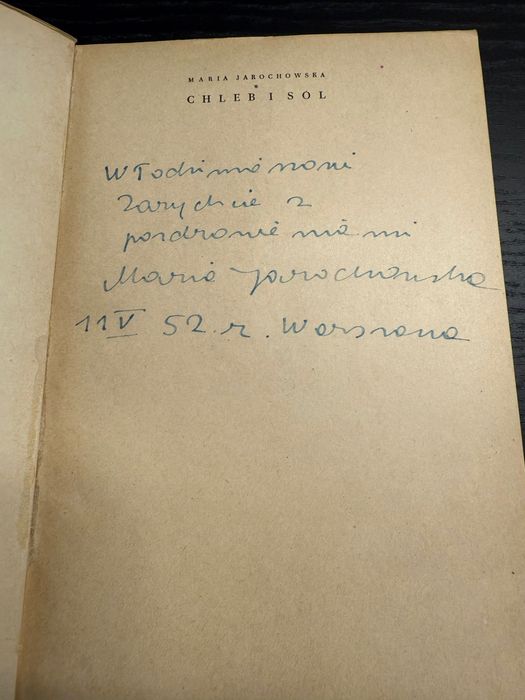 MARIA JAROCHOWSKA
*
CHLEB I SÓL
Włodzimierzowi
Zarychcie z
pozdrowieniami
Maria Jarochowska
11 V 52. r. Warszawa